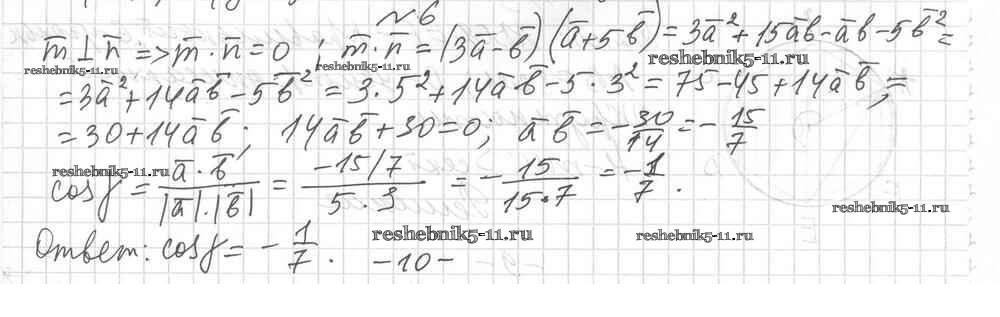 № 6
m̅ ⊥ n̅ => m̅ · n̅ = 0 ; m̅ · n̅ = (3a̅ - b̅)(a̅ + 5b̅) = 3a̅² + 15a̅b̅ - a̅b̅ - 5b̅² =
reshebnik5-11.ru reshebnik5-11.ru reshebnik5-11.ru
= 3a̅² + 14a̅b̅ - 5b̅² = 3·5² + 14a̅b̅ - 5·3² = 75 - 45 + 14a̅b̅, =
= 30 + 14a̅b̅; 14a̅b̅ + 30 = 0; a̅b̅ = -30/14 = -15/7
reshebnik5-11.ru
cosγ = a̅·b̅/|a̅|·|b̅| = -15/7/5·3 = -15/15·7 = -1/7.
reshebnik5-11.ru
Ответ: cosγ = -1/7.
reshebnik5-11.ru reshebnik5-11.ru
-10-